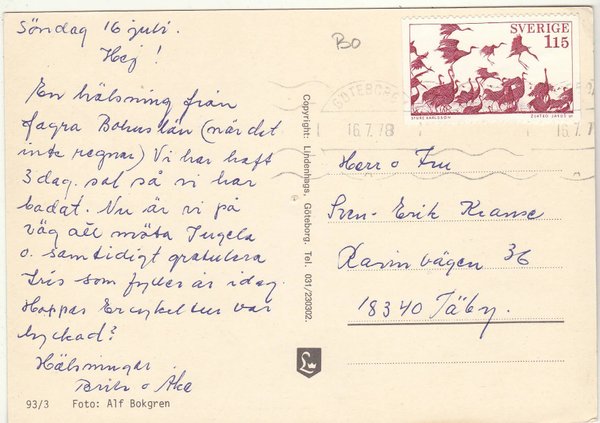 Söndag 16 juli.
Hej!
En hälsning från
fagra Bohuslän (när det
inte regnar) Vi har haft
3 dag. sol så vi har
badat. Nu är vi på
väg att möta Ingela
o. samtidigt gratulera
Iris som fyller år idag.
Hoppas Er cykeltur var
lyckad?
Hälsningar
Britt o Åke
93/3 Foto: Alf Bokgren
Copyright: Lindenhags, Göteborg. Tel. 031/230302.
BO
GÖTEBORG
16.7.78
16.7.7
SVERIGE
1.15
STURE KARLSSON
ZLATKO JAKUS SC
Herr o Fru
Sven-Erik Krause
Karinvägen 36
18340 Täby.
L